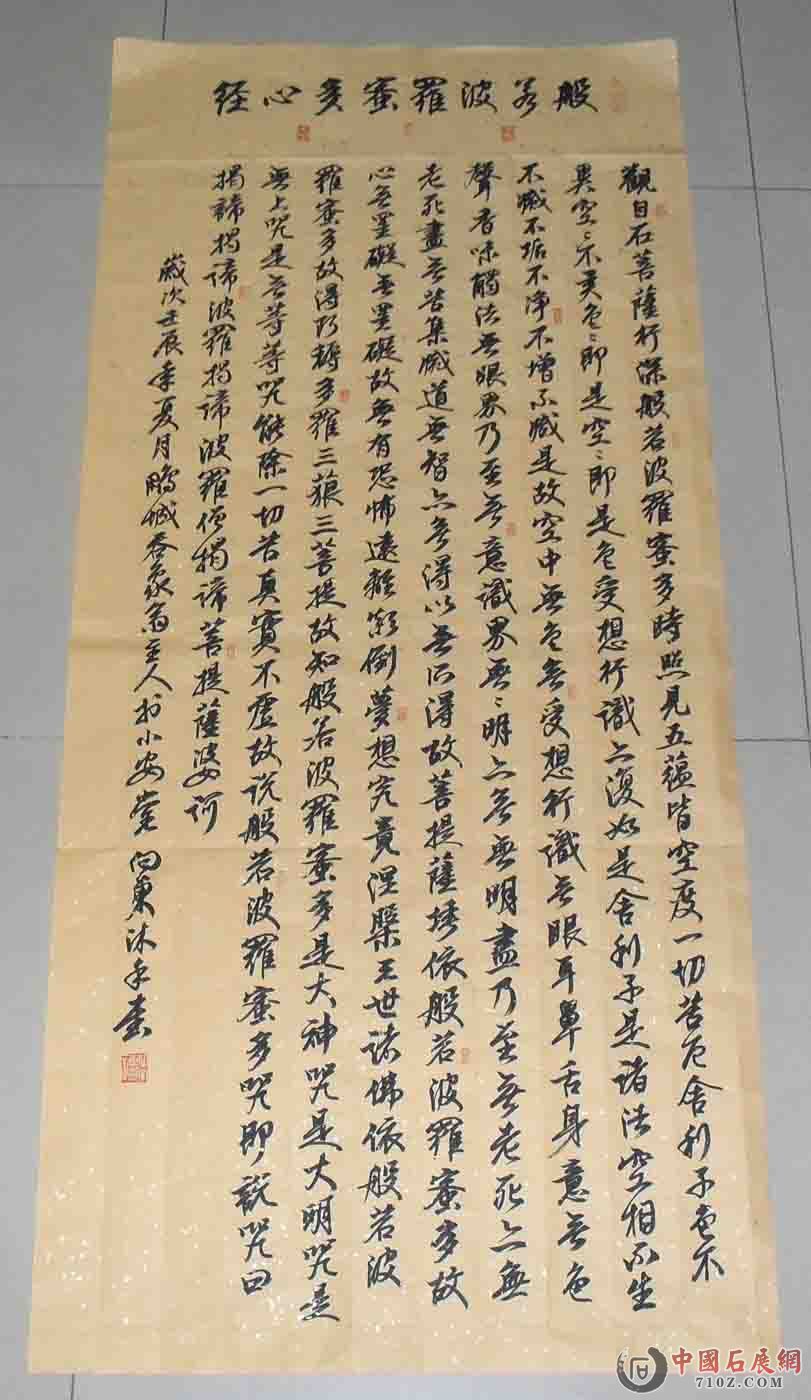 般若波羅蜜多心経
觀自在菩薩行深般若波羅蜜多時照見五蘊皆空度一切苦厄舍利子色不
異空〻不異色〻即是空〻即是色受想行識亦復如是舍利子是諸法空相不生
不滅不垢不净不增不減是故空中無色無受想行識無眼耳鼻舌身意無色
聲香味觸法無眼界乃至無意識界無〻明亦無無明盡乃至無老死亦無
老死盡無苦集滅道無智亦無得以無所得故菩提薩埵依般若波羅蜜多故
心無罣礙無罣礙故無有恐怖遠離顛倒夢想究竟涅槃三世諸佛依般若波
羅蜜多故得阿耨多羅三藐三菩提故知般若波羅蜜多是大神咒是大明咒是
無上咒是無等等咒能除一切苦真實不虛故説般若波羅蜜多咒即説咒曰
揭諦揭諦波羅揭諦波羅僧揭諦菩提薩婆訶
歲次壬辰年夏月鵬城吞象翁主人於小安堂向東沐手書
中國石展網
710Z.COM